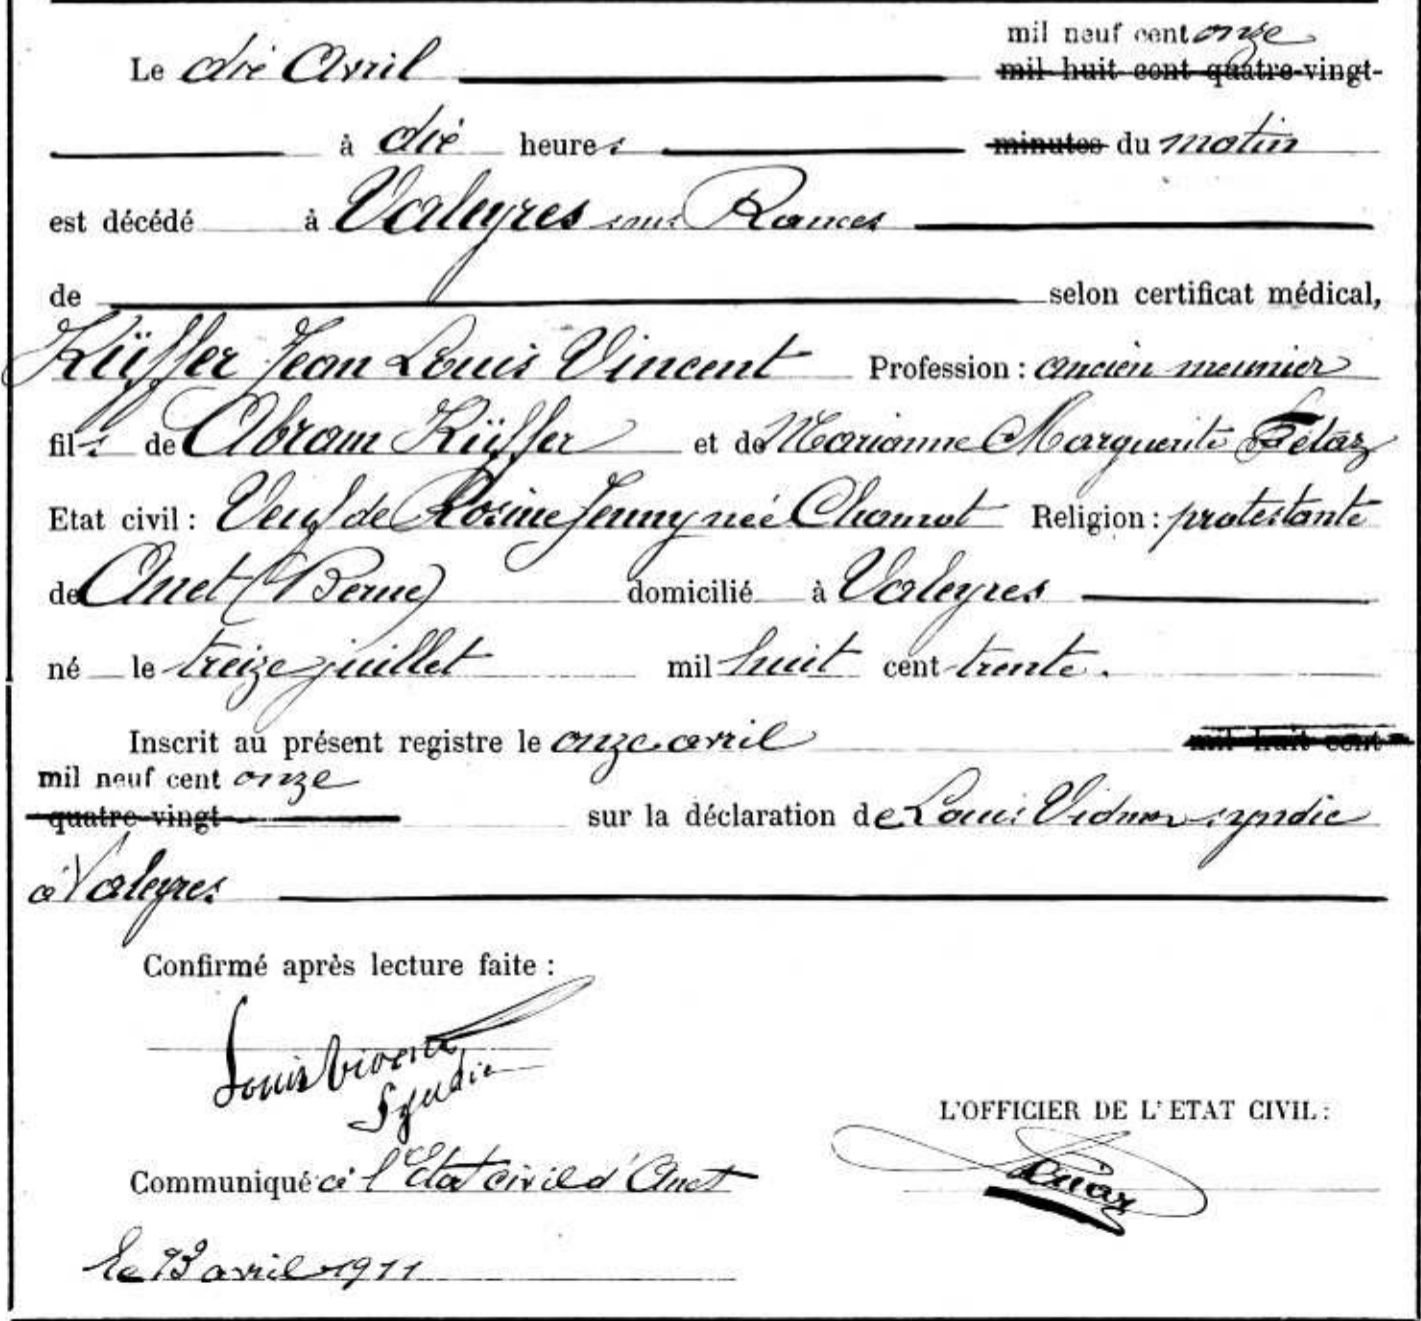 mil neuf cent onze
Le dix Avril mil huit cent quatre-vingt-
à dix heures minutes du matin
est décédé à Valeyres sous Rances
de selon certificat médical,
Küffer Jean Louis Vincent Profession : ancien meunier
fils de Abram Küffer et de Marianne Marguerite Fétaz
Etat civil : Veuf de Rosine Jenny née Chamot Religion : protestante
de Anet (Berne) domicilié à Valeyres
né le treize juillet mil huit cent trente.
Inscrit au présent registre le onze avril mil huit cent
mil neuf cent onze
quatre-vingt sur la déclaration de Louis syndic
à Valeyres
Confirmé après lecture faite :
Louis
Syndic
L'OFFICIER DE L'ETAT CIVIL :
Communiqué à l'Etat civil d'Anet
le 13 avril 1911